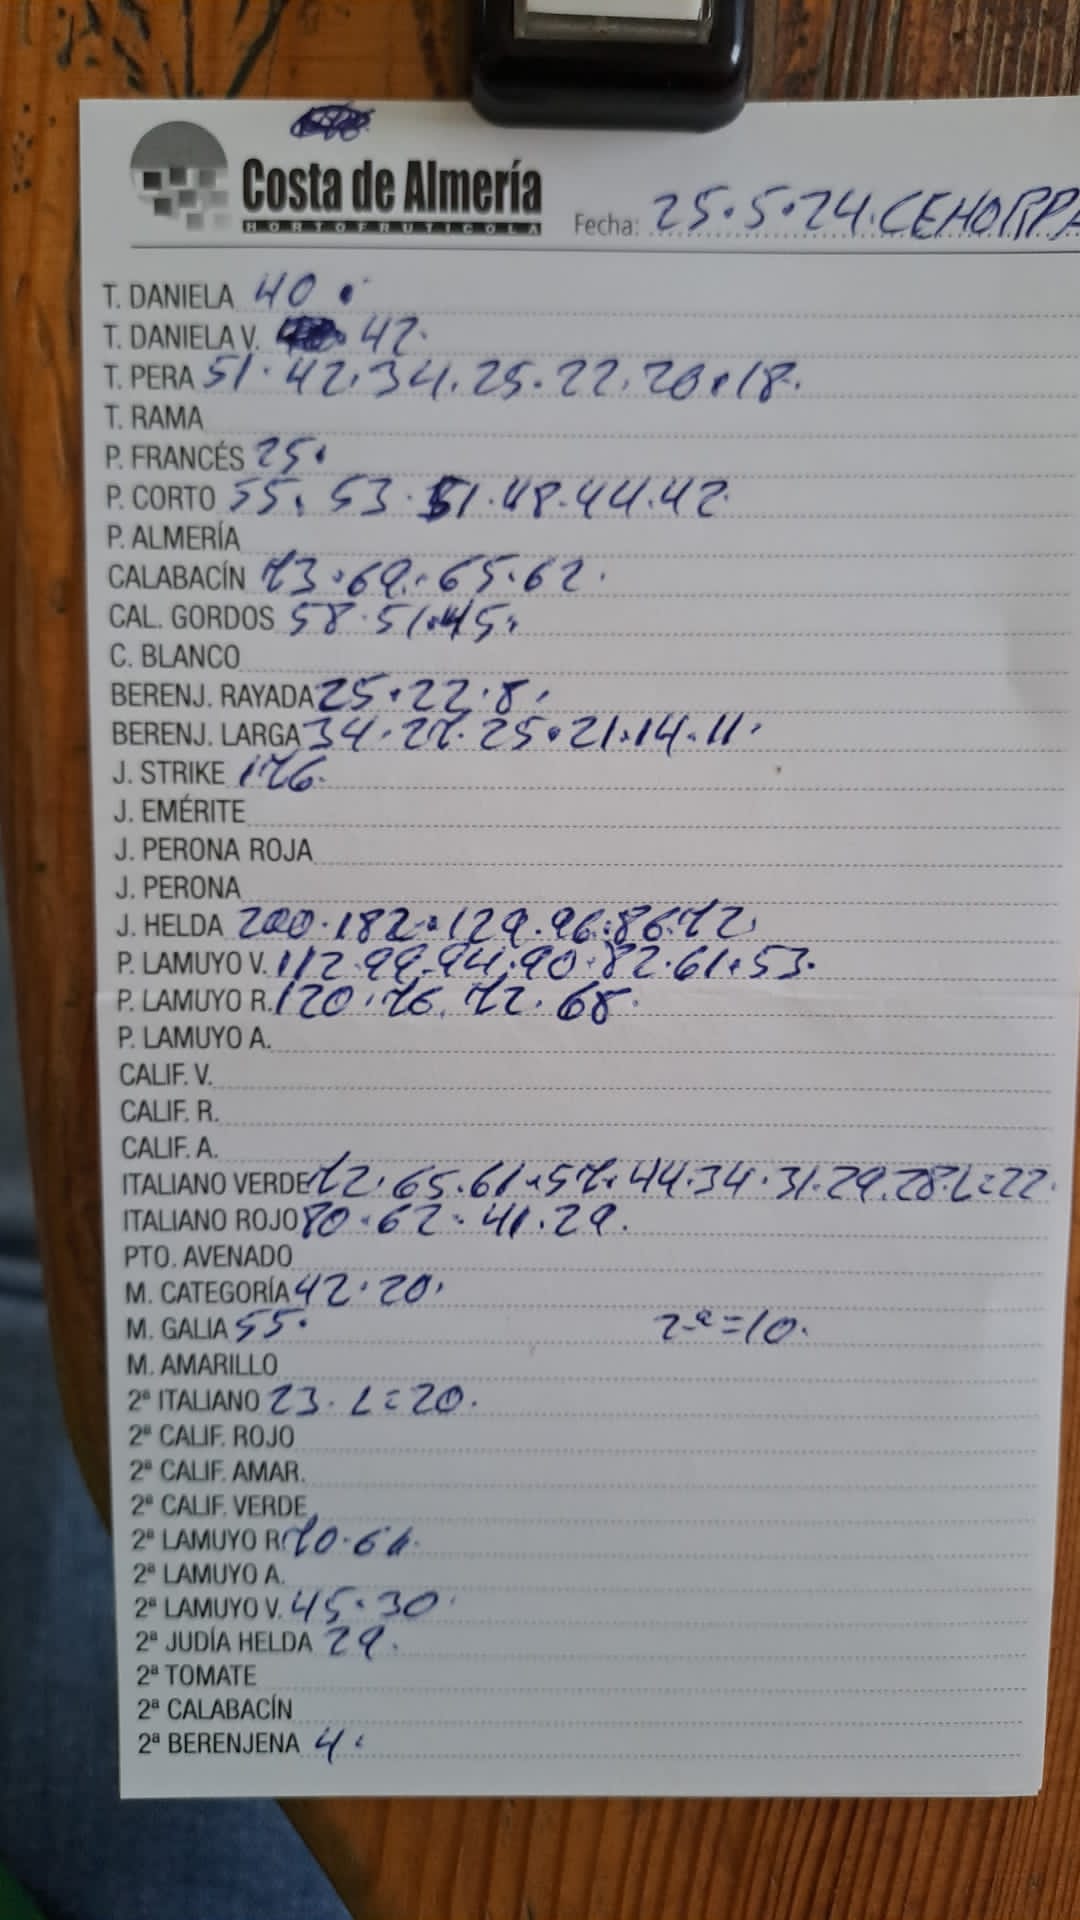 Costa de Almería
HORTOFRUTICOLA
Fecha: 25.5.24. CEHORPA
T. DANIELA 40.
T. DANIELA V. 42.
T. PERA 51. 42. 34. 25. 22. 20. 18.
T. RAMA
P. FRANCÉS 25.
P. CORTO 55. 53. 51. 48. 44. 42.
P. ALMERÍA
CALABACÍN 73. 69. 65. 62.
CAL. GORDOS 58. 51. 45.
C. BLANCO
BERENJ. RAYADA 25. 22. 8.
BERENJ. LARGA 34. 27. 25. 21. 14. 11.
J. STRIKE 176.
J. EMÉRITE
J. PERONA ROJA
J. PERONA
J. HELDA 200. 182. 129. 96. 86. 72.
P. LAMUYO V. 112. 99. 94. 90. 82. 61. 53.
P. LAMUYO R. 120. 76. 72. 68.
P. LAMUYO A.
CALIF. V.
CALIF. R.
CALIF. A.
ITALIANO VERDE 72. 65. 61. 57. 44. 34. 31. 29. 28. L=22.
ITALIANO ROJO 80. 62. 41. 29.
PTO. AVENADO
M. CATEGORÍA 42. 20.
M. GALIA 55. 2ª=10.
M. AMARILLO
2ª ITALIANO 23. L=20.
2ª CALIF. ROJO
2ª CALIF. AMAR.
2ª CALIF. VERDE
2ª LAMUYO R. 70.
2ª LAMUYO A.
2ª LAMUYO V. 45. 30.
2ª JUDÍA HELDA 29.
2ª TOMATE
2ª CALABACÍN
2ª BERENJENA 4.